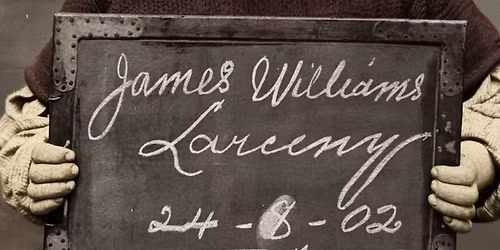 James Williams
Larceny
24-8-02